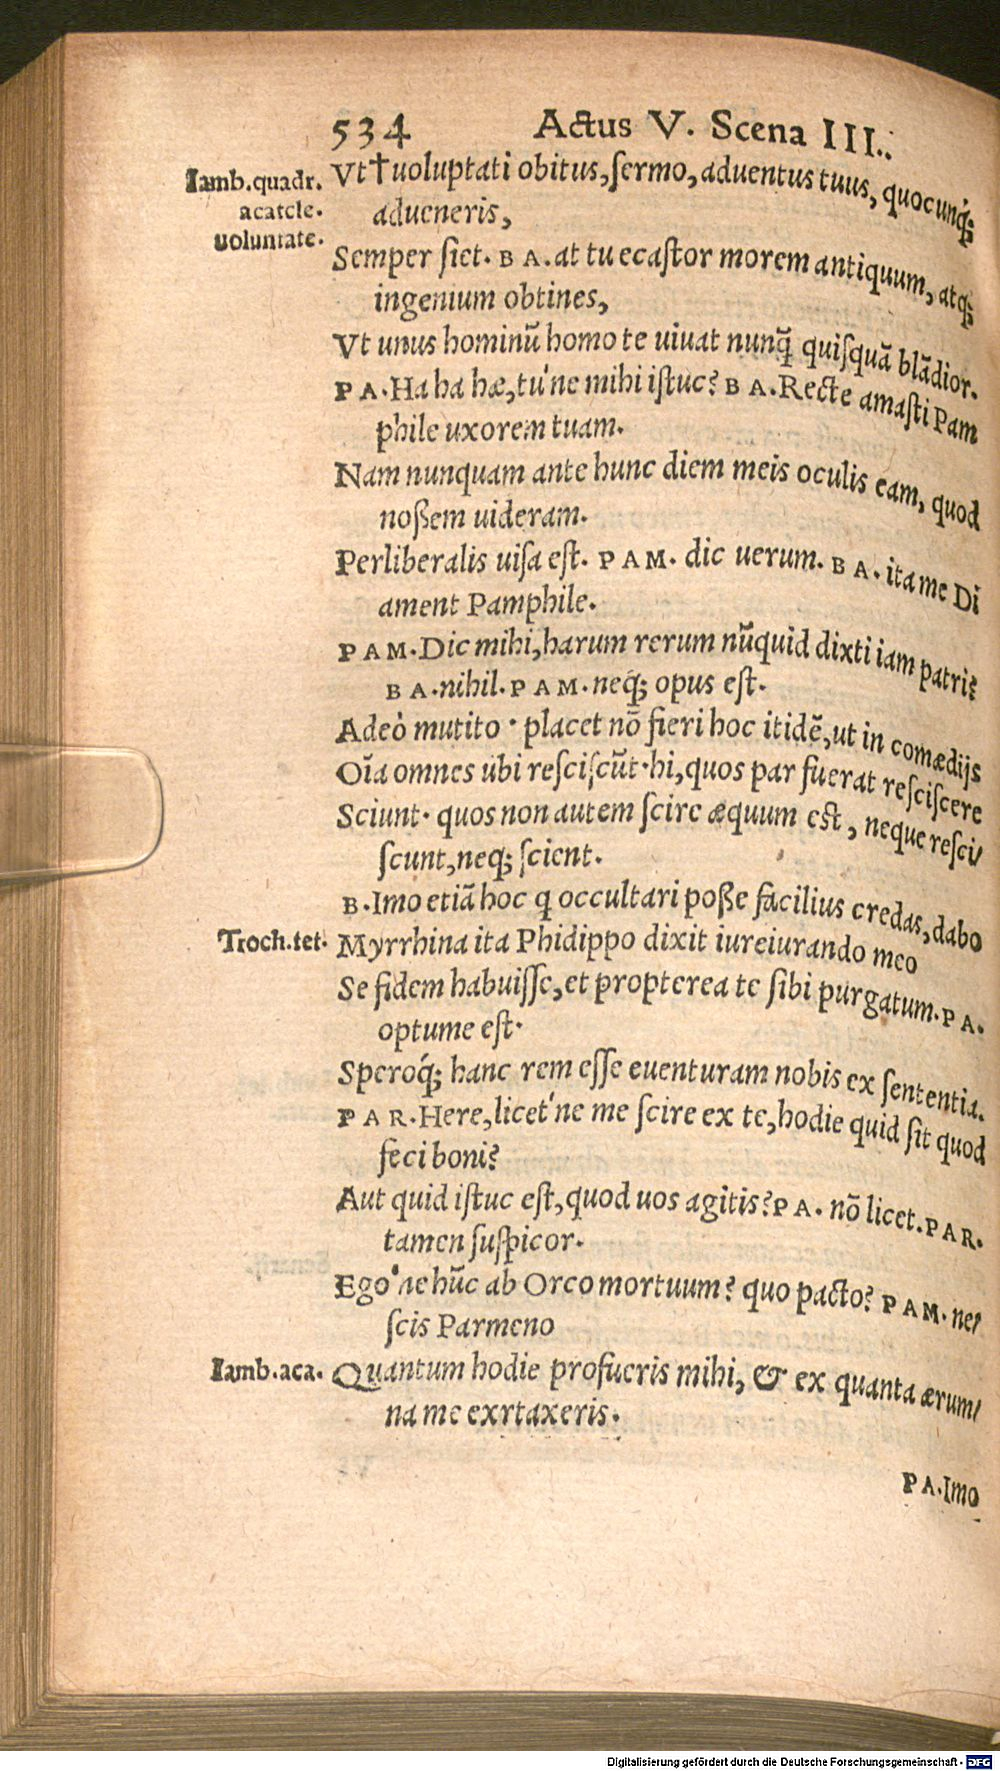 534 Actus V. Scena III..
Iamb.quadr. Vt†uoluptati obitus,ſermo,aduentus tuus, quocunq́;
acatcle. adueneris,
uoluntate.
Semper ſiet. BA.at tu ecaſtor morem antiquum, atq;
ingenium obtines,
Vt unus hominū homo te uiuat nunq̄ quiſquā blādior.
PA.Ha ha hæ,tu'ne mihi iſtuc? BA.Recte amaſti Pam
phile uxorem tuam.
Nam nunquam ante hunc diem meis oculis eam, quod
noßem uideram.
Perliberalis uiſa eſt. PAM. dic uerum. BA.ita me Di
ament Pamphile.
PAM.Dic mihi,harum rerum nūquid dixti iam patri?
BA.nihil.PAM.neq; opus eſt.
Adeò mutito · placet nō fieri hoc itidē,ut in comœdijs
Oīa omnes ubi reſciſcūt·hi,quos par fuerat reſciſcere
Sciunt· quos non autem ſcire æquum eſt, neque reſci/
ſcunt,neq; ſcient.
B.Imo etiā hoc q occultari poße facilius credas,dabo
Troch.tet. Myrrhina ita Phidippo dixit iureiurando meo
Se fidem habuiſſe,et propterea te ſibi purgatum.PA.
optume eſt·
Speroq́; hanc rem eſſe euenturam nobis ex ſententia.
PAR.Here,licet'ne me ſcire ex te,hodie quid ſit quod
feci boni?
Aut quid iſtuc eſt,quod uos agitis?PA. nō licet.PAR.
tamen ſuſpicor.
Ego'ne hūc ab Orco mortuum? quo pacto? PAM. ne/
ſcis Parmeno
Iamb.aca. Quantum hodie profueris mihi, & ex quanta ærum/
na me exrtaxeris.
PA.Imo
Digitalisierung gefördert durch die Deutsche Forschungsgemeinschaft - DFG